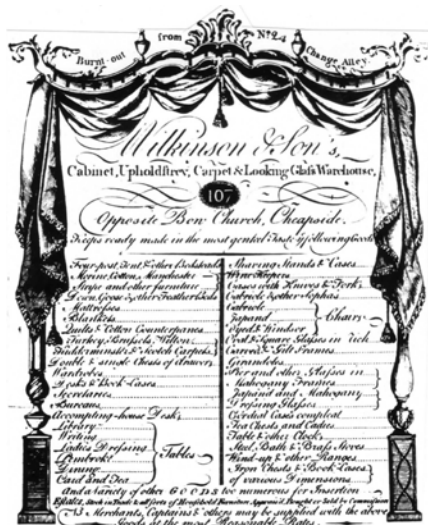 Burnt-out from No. 24 Change Alley.
Wilkinson & Son's,
Cabinet, Upholstrey, Carpet & Looking Glass Warehouse,
107
Opposite Bow Church, Cheapside.
Keeps ready made in the most genteel Taste ye following Goods
Four-post, Tent & other Bedsteads
Morine, Cotton, Manchester
Stripe and other furniture
Down, Goose & other Featherbeds
Mattresses
Blankets
Quilts & Cotton Counterpanes
Turkey, Brussels, Wilton,
Kidderminster & Scotch Carpets
Double & single Chests of Drawers
Wardrobes
Desks & Book-Cases
Secretaries
Bureaus
Accompting-house Desks
Library
Writing
Ladies Dressing
Pembroke
Dining
Card and Tea
Tables
Shaving Stands & Cases
Wine Keepers
Cases with Knives & Forks
Cabriole & other Sophas
Cabriole
Japand
Dyed & Windsor
Chairs
Oval & Square Glasses in rich
Carved & Gilt Frames
Girandoles
Pier and other Glasses in
Mahogany Frames
Japand and Mahogany
Dressing Glasses
Cordial Cases compleat
Tea Chests and Cadies
Table & other Clocks
Steel, Bath & Brass Stoves
Wind-up & other Ranges
Iron Chests & Book-Cases
of various Dimensions
And a Variety of other GOODS too numerous for Insertion
Estates, Stock in Trade & all sorts of Household Furniture Apprais'd, Bought or Sold by Commission
NB Merchants, Captains & others may be supplied with the above
Goods at the most Reasonable Rates